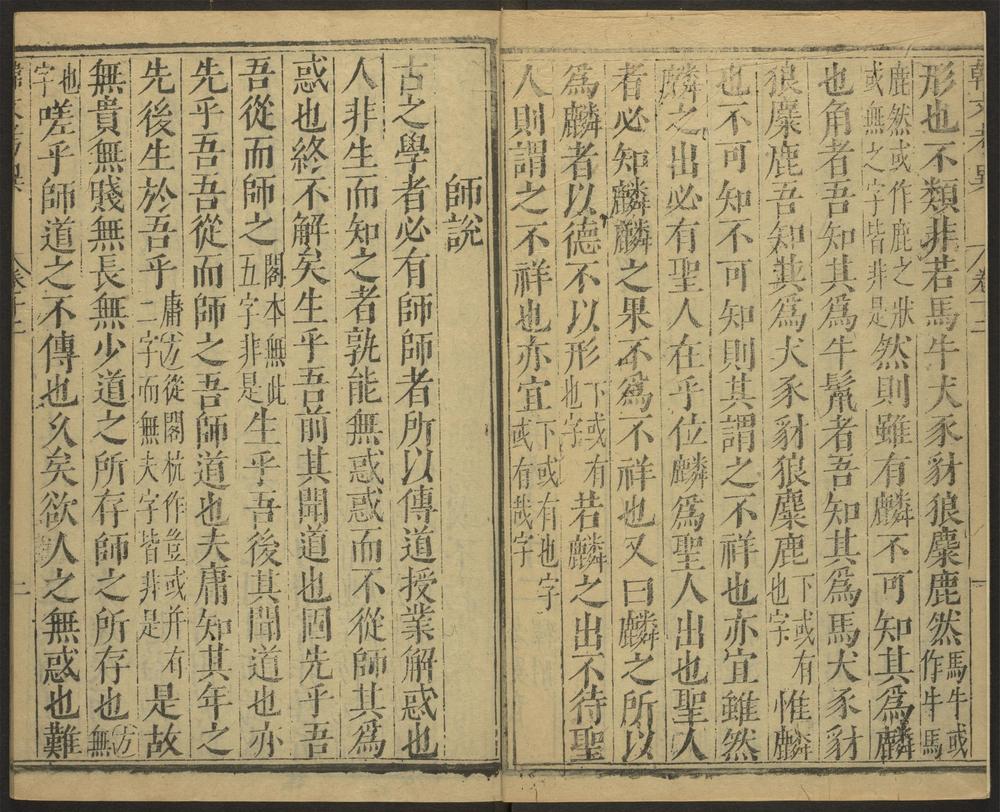 形也不類非若馬牛犬豕豺狼麋鹿然馬牛或作牛馬
鹿然或作鹿之狀或無之字皆非是然則雖有麟不可知其爲麟
也角者吾知其爲牛鬛者吾知其爲馬犬豕豺
狼麋鹿吾知其爲犬豕豺狼麋鹿下或有也字惟麟
也不可知不可知則其謂之不祥也亦宜雖然
麟之出必有聖人在乎位麟爲聖人出也聖人
者必知麟麟之果不爲不祥也又曰麟之所以
爲麟者以德不以形下或有也字若麟之出不待聖
人則謂之不祥也亦宜下或有也字或有哉字
師說
古之學者必有師師者所以傳道授業解惑也
人非生而知之者孰能無惑惑而不從師其爲
惑也終不解矣生乎吾前其聞道也固先乎吾
吾從而師之閣本無此五字非是生乎吾後其聞道也亦
先乎吾吾從而師之吾師道也夫庸知其年之
先後生於吾乎庸方從閣杭作豈或并有二字而無夫字皆非是是故
無貴無賤無長無少道之所存師之所存也方無
也字嗟乎師道之不傳也久矣欲人之無惑也難
韓文考異
卷十二
二